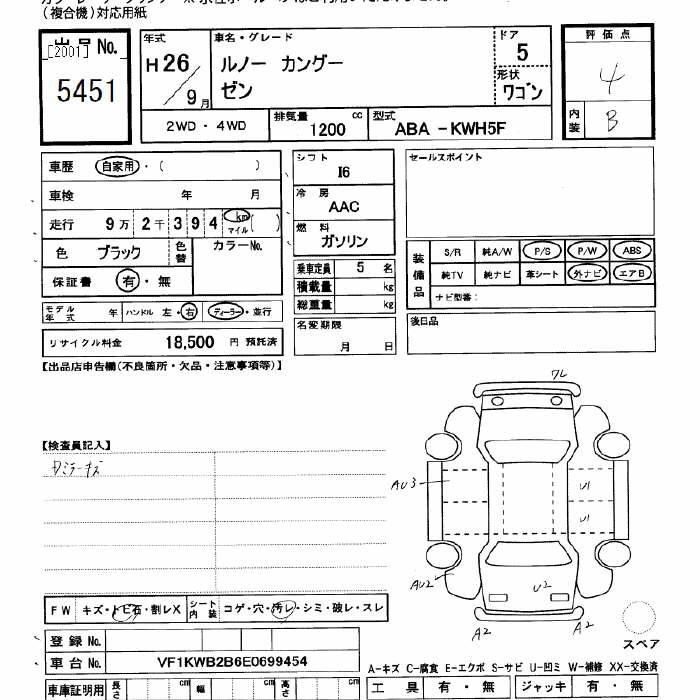 (複合機)対応用紙
出品 No. [2001]
5451
年式 H26/9月
車名・グレード
ルノー カングー
ゼン
ドア 5
形状 ワゴン
評価点 4
内装 B
2WD・4WD
排気量 1200 cc
型式 ABA -KWH5F
車歴 自家用・( )
車検 年 月
走行 9万 2千 3 9 4 km マイル ( )
色 ブラック 色替 カラーNo.
保証書 有・無
シフト I6
冷房 AAC
燃料 ガソリン
乗車定員 5 名
積載量 kg
総重量 kg
セールスポイント
装備品 S/R 純A/W P/S P/W ABS
純TV 純ナビ 革シート 外ナビ エアB
ナビ型番:
モデル年式 年 ハンドル 左・右 ディーラー・並行
リサイクル料金 18,500 円 預託済
名変期限 月 日
後日品
【出品店申告欄(不良箇所・欠品・注意事項等)】
【検査員記入】
ワレ
AU3
U1
U1
AU2
U2
A2
A2
スペア
FW キズ・トビ石・割レX シート内装 コゲ・穴・汚レ・シミ・破レ・スレ
登録 No.
車台 No. VF1KWB2B6E0699454
A-キズ C-腐食 E-エクボ S-サビ U-凹ミ W-補修 XX-交換済
車庫証明用 長さ cm 幅 cm 高さ cm
工具 有・無 ジャッキ 有・無